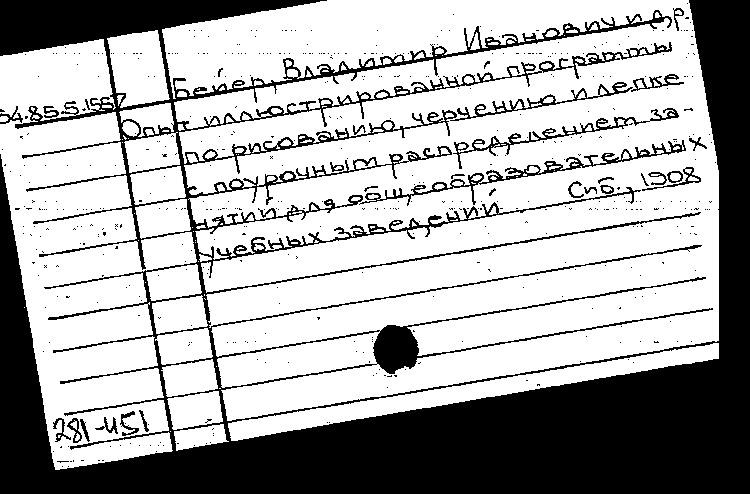 Бейер, Владимир Иванович и др.
34.85.5.1557
Опыт иллюстрированной программы
по рисованию, черчению и лепке
с поурочным распределением за-
нятий для общеобразовательных
учебных заведений. Спб., 1908
281-451